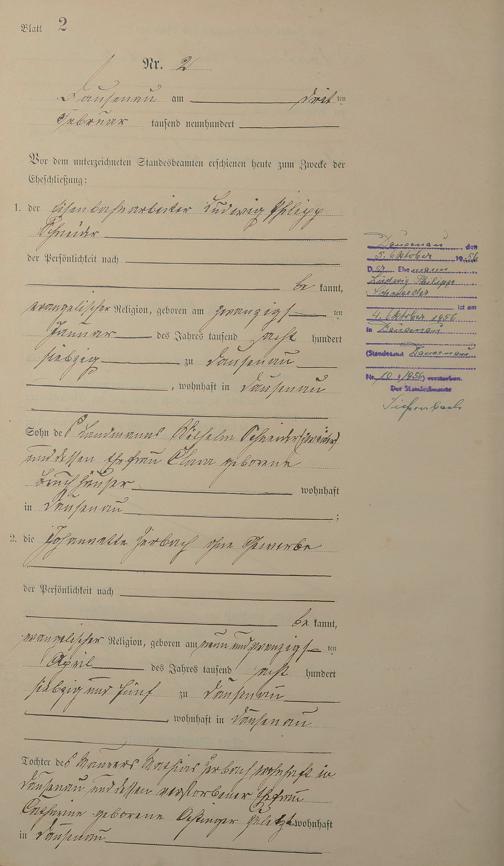 Blatt 2
Nr. 2
Dausenau am dritten
Februar tausend neunhundert
Vor dem unterzeichneten Standesbeamten erschienen heute zum Zwecke der
Eheschließung:
1. der Eisenbahnarbeiter Ludwig Philipp
Schneider
der Persönlichkeit nach
be kannt,
evangelischer Religion, geboren am zwanzigsten
Januar des Jahres tausend acht hundert
siebzig zu Dausenau
, wohnhaft in Dausenau
Sohn des Landmanns Wilhelm Schneider
und dessen Ehefrau Clara geborene
wohnhaft
in Dausenau ;
2. die Johannette Herbach ohne Gewerbe
der Persönlichkeit nach
be kannt,
evangelischer Religion, geboren am neun und zwanzigsten
April des Jahres tausend acht hundert
siebzig und fünf zu Dausenau
, wohnhaft in Dausenau
Tochter des Maurers Mathias Herbach wohnhaft in
Dausenau und dessen verstorbener Ehefrau
Catharine geborene zuletzt wohnhaft
in Dausenau
Dausenau, den
5. Oktober 1956
D er Ehemann
Ludwig Philipp
Schneider
ist am
4. Oktober 1956
in Dausenau
(Standesamt Dausenau
Nr. 10/1956) verstorben.
Der Standesbeamte